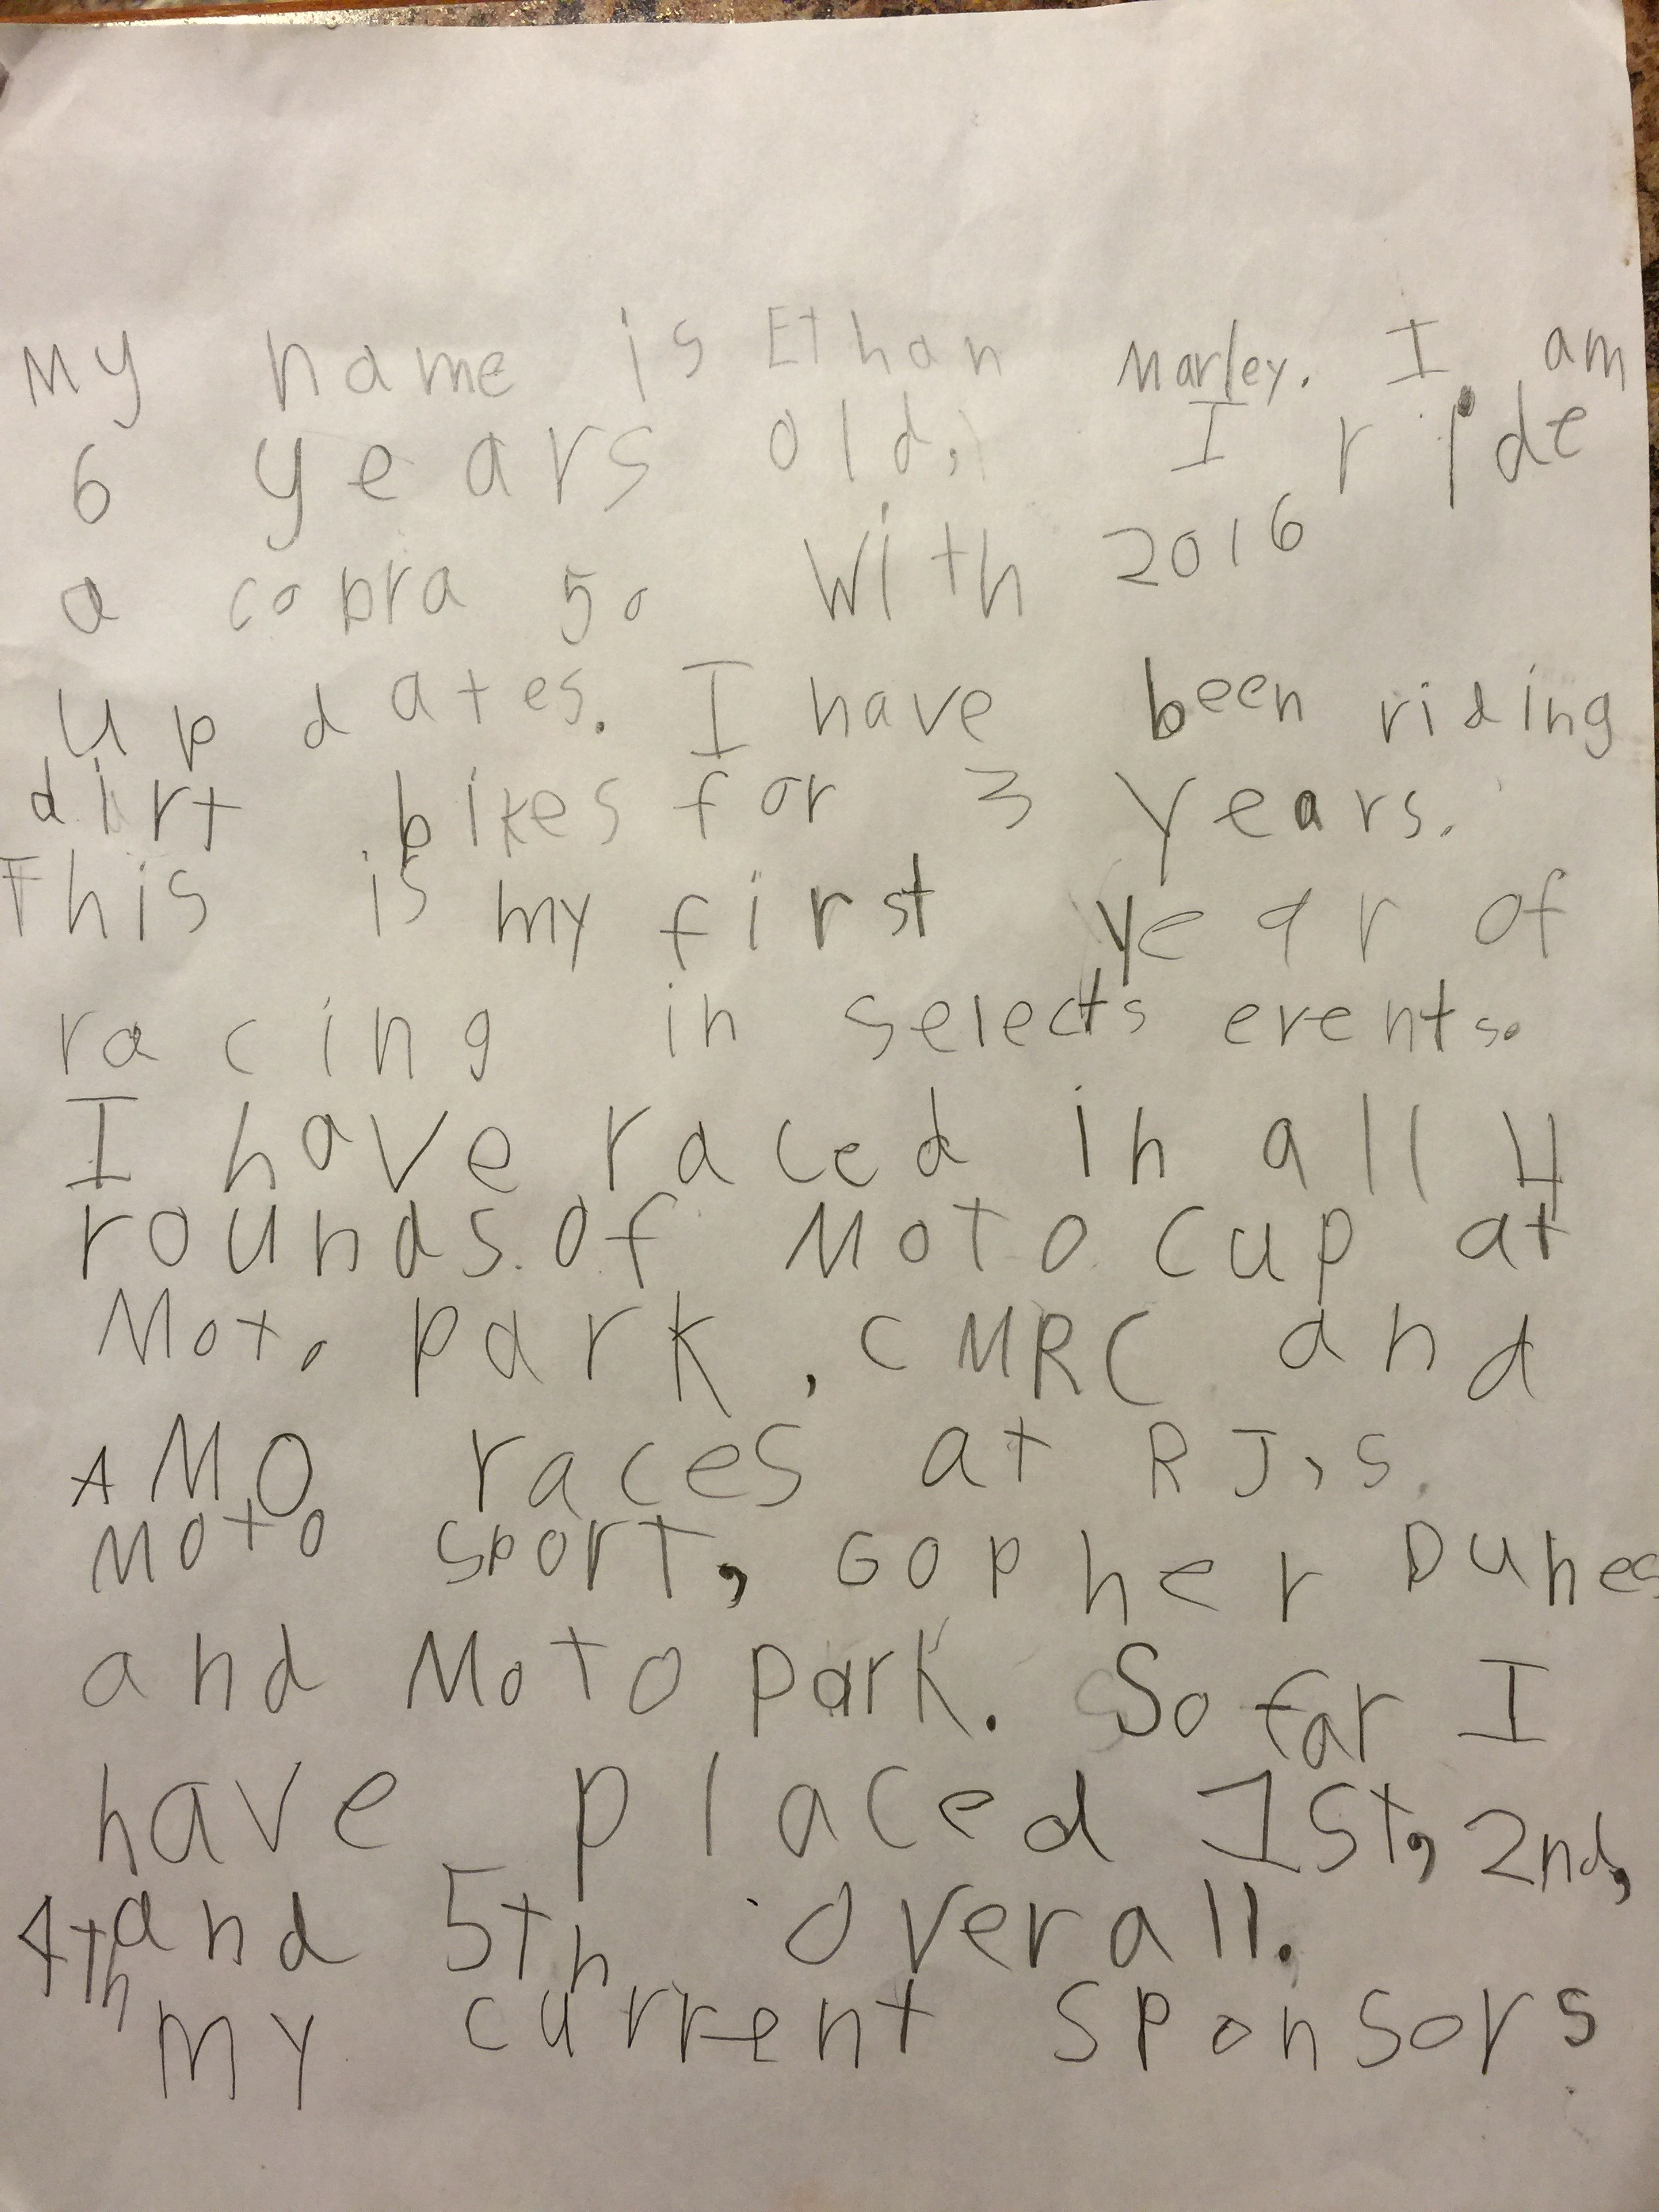 My name is Ethan Marley. I am
6 years old. I ride
a cobra 50 with 2016
up dates. I have been riding
dirt bikes for 3 years.
This is my first year of
racing in selects events.
I have raced in all 4
rounds of Moto cup at
Moto park, CMRC and
AMO races at RJ,s
Moto sport, Gopher Dunes
and Moto park. So far I
have placed 1st, 2nd,
4th and 5th overall.
My current sponsors